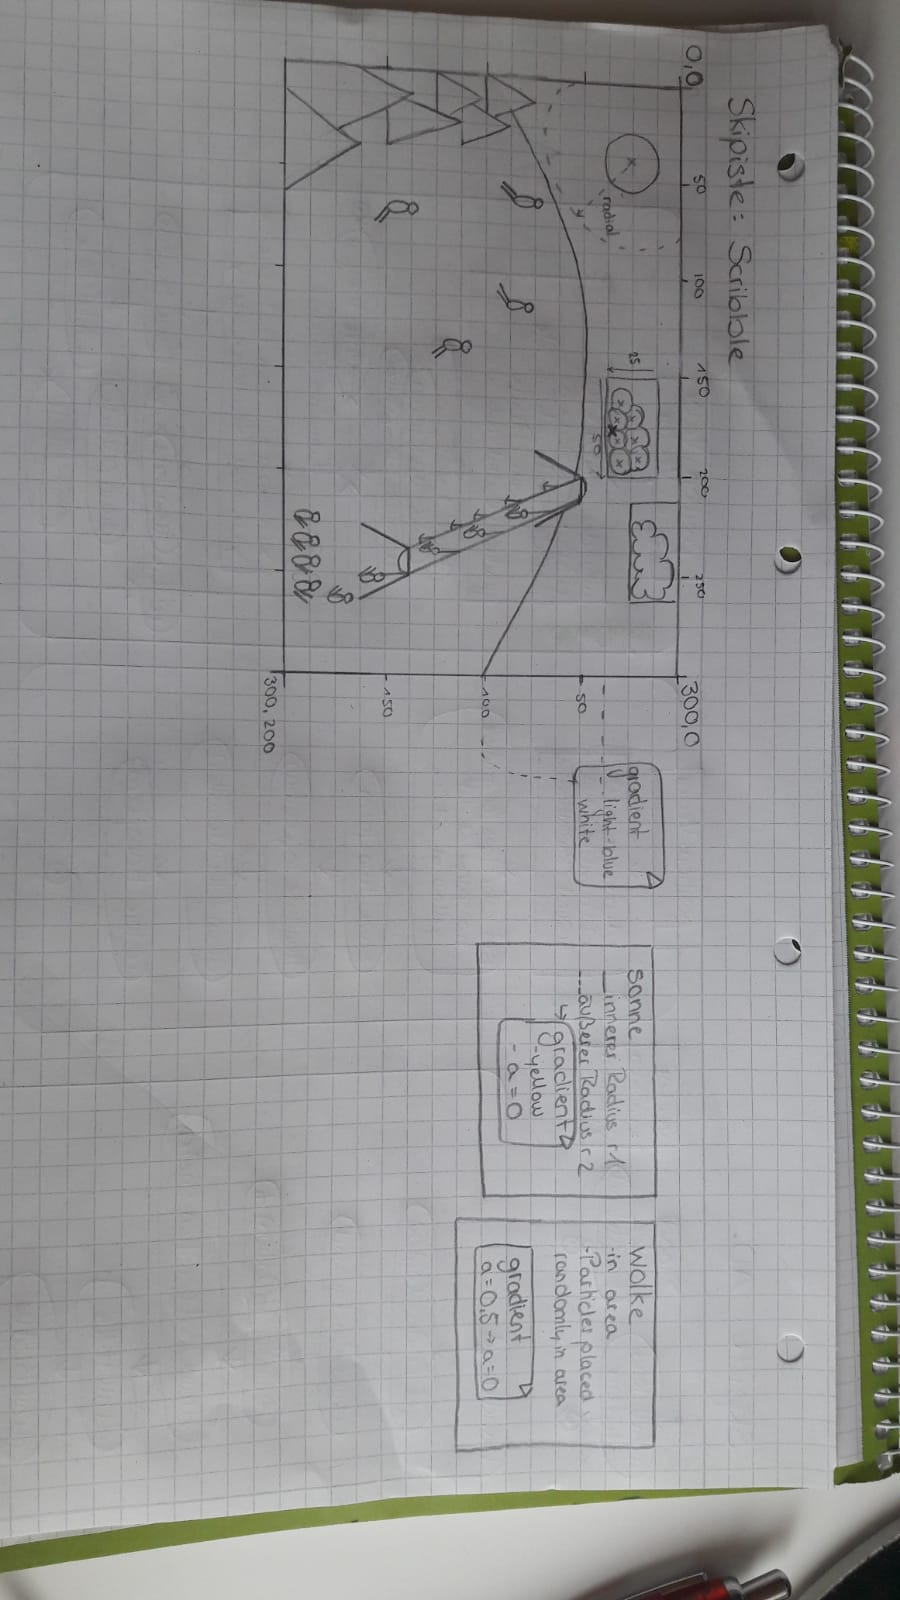 Skipiste: Scribble
0,0
50
100
150
200
250
300,0
radial
25
50
50
100
150
300, 200
gradient
- light-blue
white
Sonne
innerer Radius r1
äußerer Radius r2
↳ gradient
- yellow
- a = 0
Wolke
- in area
- Particles placed
randomly in area
gradient
a = 0,5 → a = 0